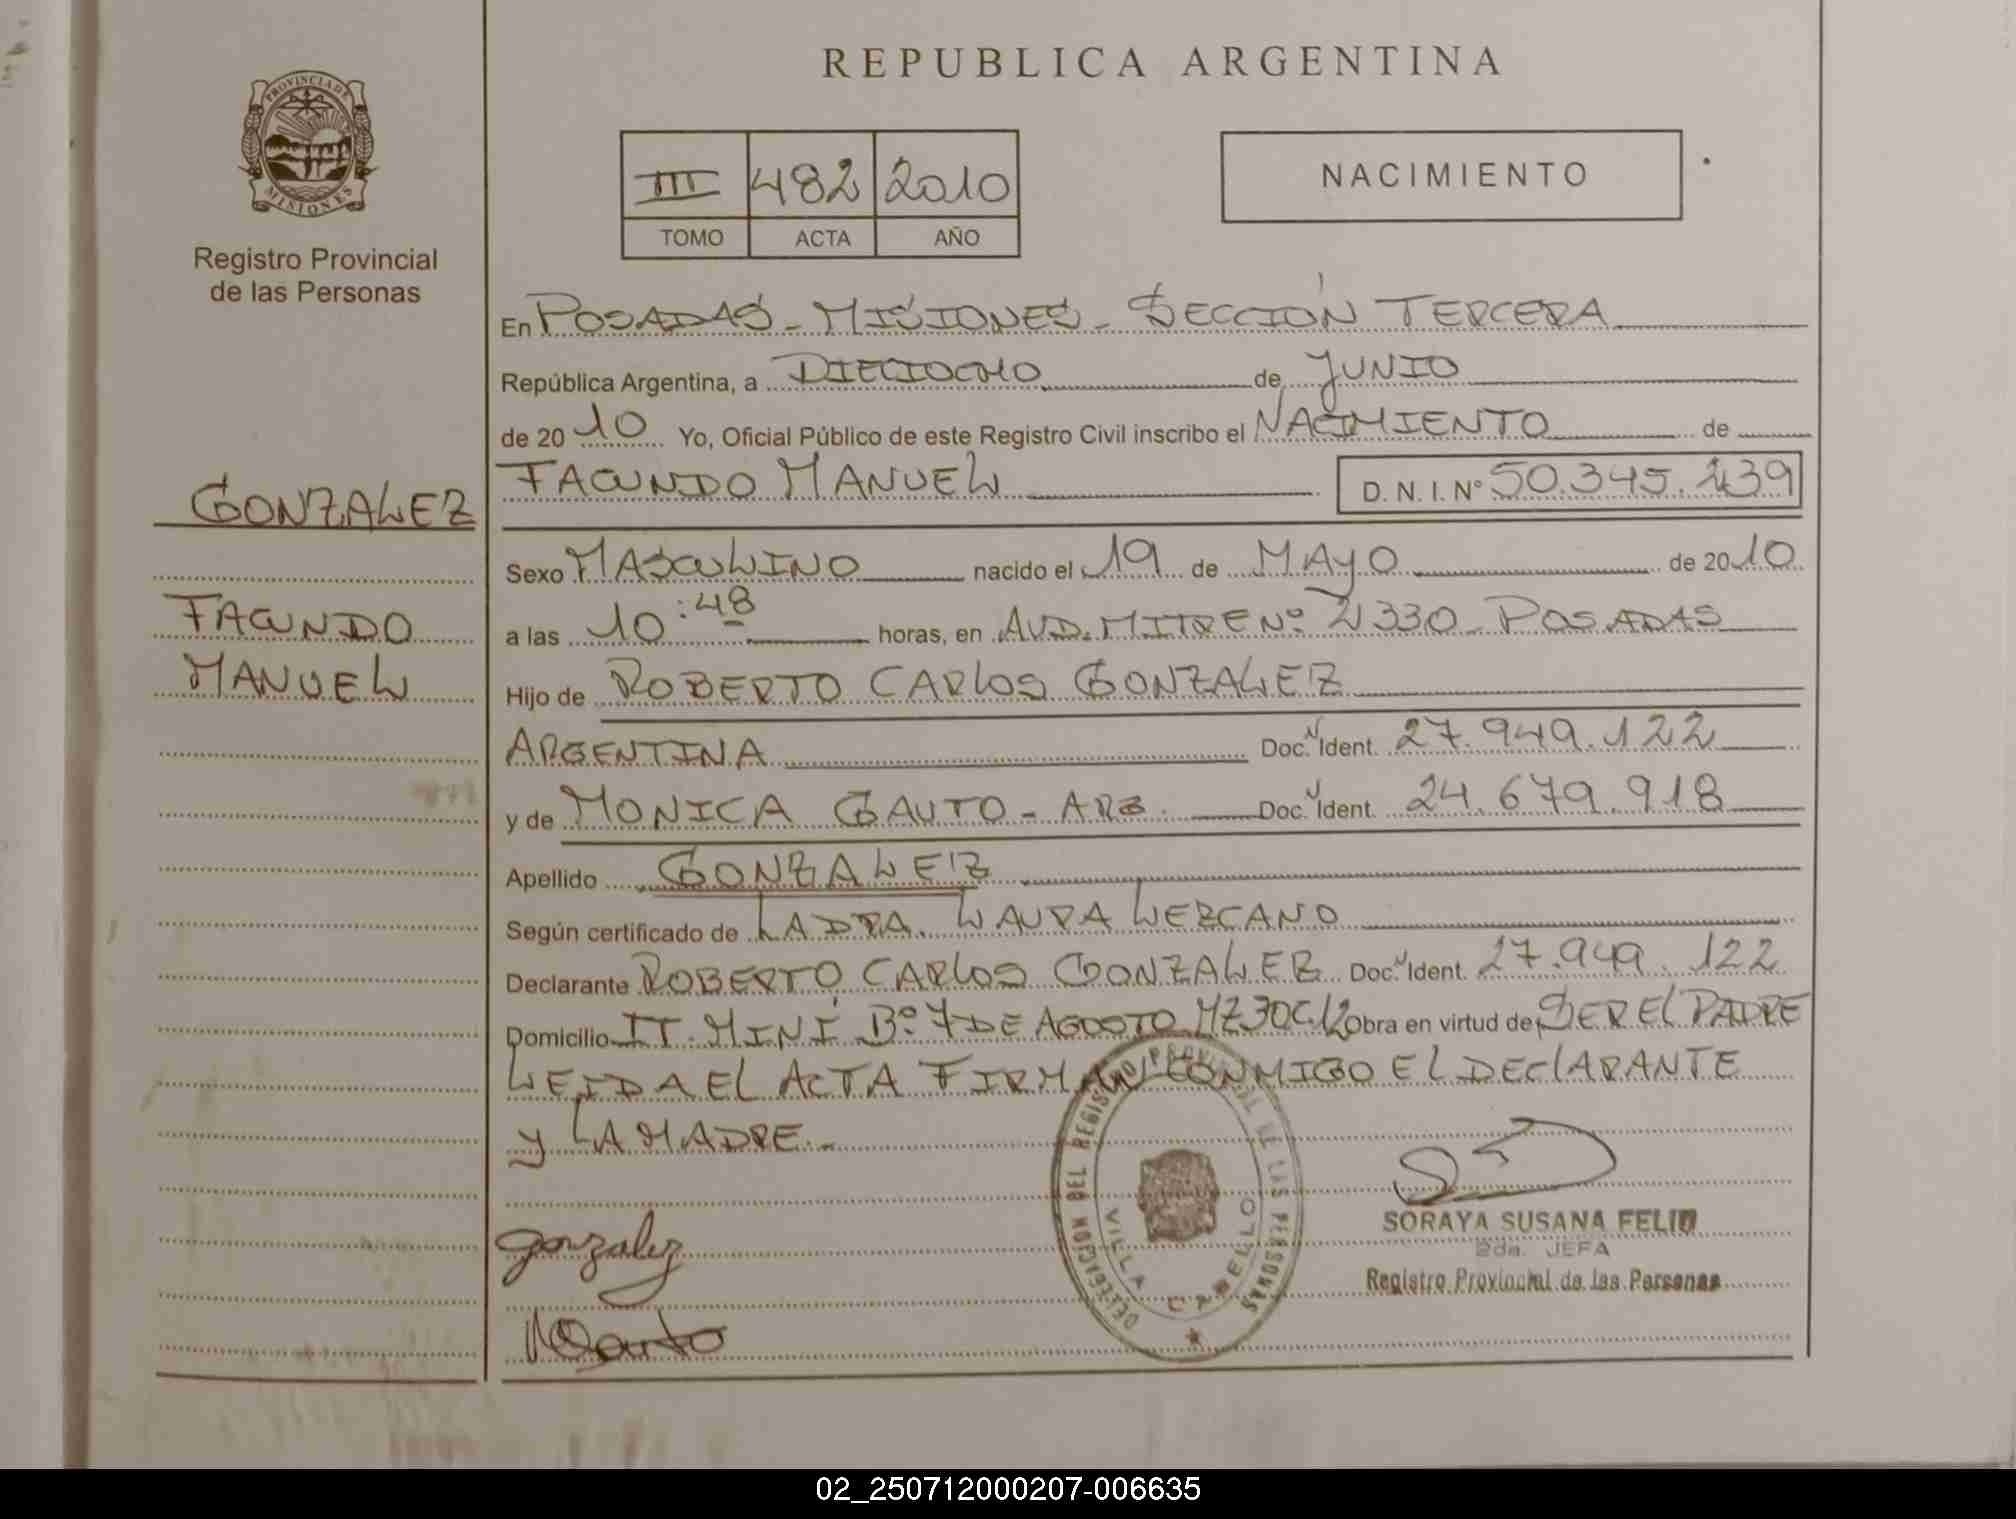 REPUBLICA ARGENTINA
PROVINCIA DE MISIONES
Registro Provincial
de las Personas
III 482 2010
TOMO ACTA AÑO
NACIMIENTO
En POSADAS - MISIONES - SECCIÓN TERCERA
República Argentina, a DIECIOCHO de JUNIO
de 2010 Yo, Oficial Público de este Registro Civil inscribo el NACIMIENTO de
FACUNDO MANUEL D. N. I. Nº 50.345.239
GONZALEZ
FACUNDO
MANUEL
Sexo MASCULINO nacido el 19 de MAYO de 2010
a las 10:48 horas, en AVD. MITRE Nº 2330 - POSADAS
Hijo de ROBERTO CARLOS GONZALEZ
ARGENTINA Doc. Ident. 27.949.122
y de MONICA GAUTO - ARG. Doc. Ident. 24.679.918
Apellido GONZALEZ
Según certificado de LA DRA. LAURA LEZCANO
Declarante ROBERTO CARLOS GONZALEZ Doc. Ident. 27.949.122
Domicilio IT. MINÍ Bº 7 DE AGOSTO MZ 30 C.12 Obra en virtud de SER EL PADRE
LEIDA EL ACTA FIRMAN CONMIGO EL DECLARANTE
y LA MADRE.-
DELEGACION DEL REGISTRO PROVINCIAL DE LAS PERSONAS
VILLA CABELLO
SORAYA SUSANA FELIU
2da. JEFA
Registro Provincial de las Personas
Gonzalez
MGauto
02_250712000207-006635